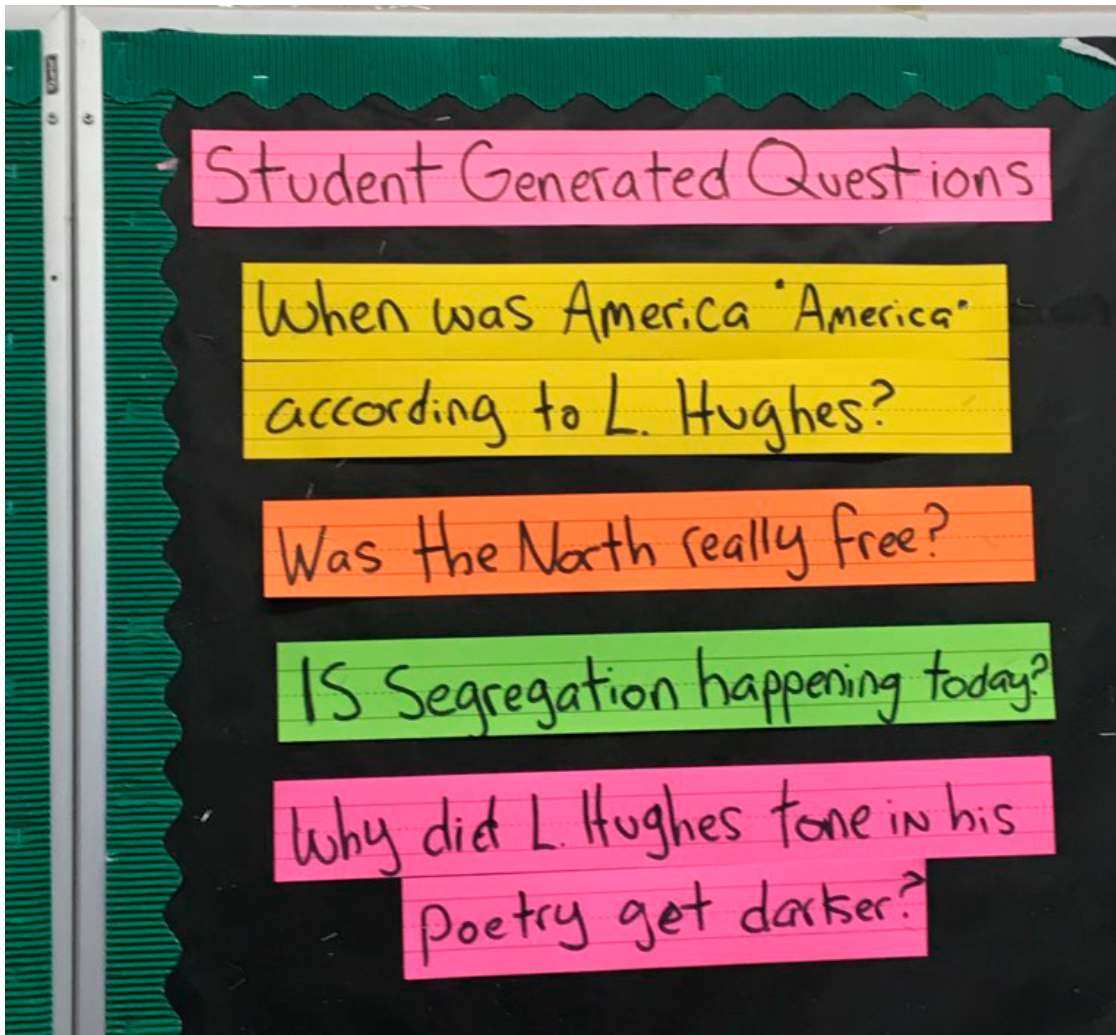 Student Generated Questions
When was America "America"
according to L. Hughes?
Was the North really free?
Is Segregation happening today?
Why did L. Hughes tone in his
poetry get darker?